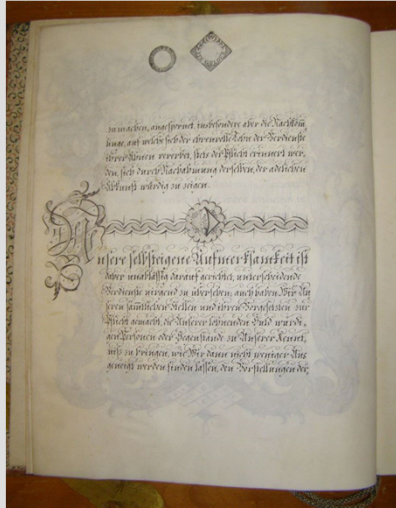 zu machen, angespornet, insbesondere aber die Nachköm̄
linge, auf welche sich der ehrenvolle Lohn der Verdienste
ihrer Ahnen vererbet, stets der Pflicht erinnert wer,
den, sich durch Nachahmung derselben, der adelichen
Abkunft würdig zu zeigen.
Unsere selbsteigene Aufmerksamkeit ist
daher unablässig darauf gerichtet, unterscheidende
Verdienste nirgend zu übersehen; auch haben Wir Un
seren sammtlichen Stellen und ihren Vorgesetzten zur
Pflicht gemacht, die Unserer lohnenden Huld würdi,
gen Personen oder Gegenstände zu Unserer Kennt,
niß zu bringen, wie Wir dann nicht weniger Uns
geneigt werden finden lassen, den Vorstellungen der,